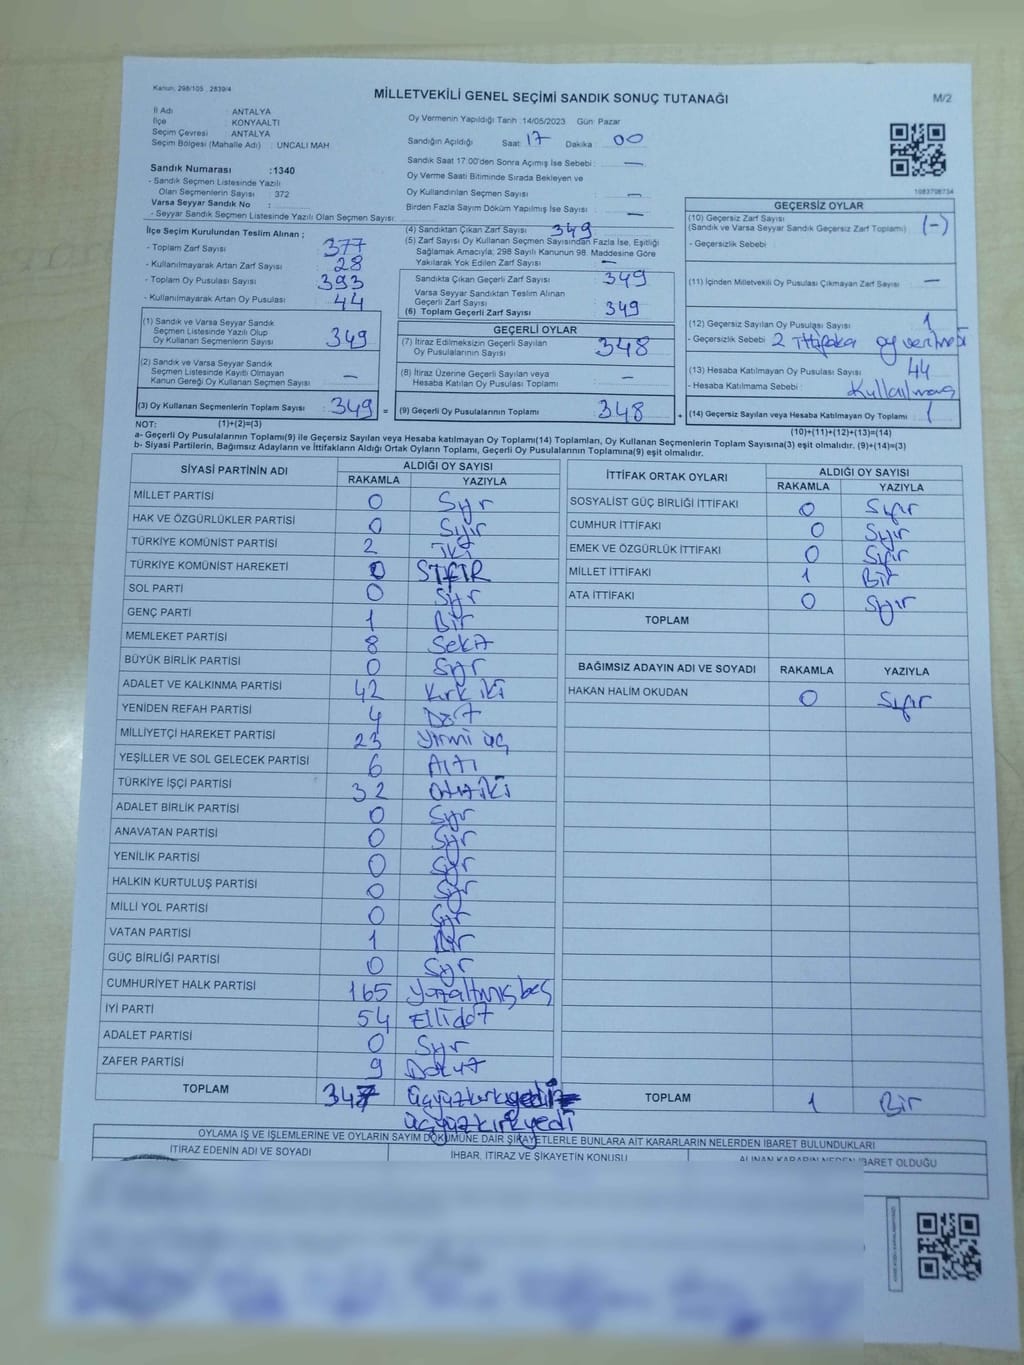 Kanun: 298/105 , 2839/4
MİLLETVEKİLİ GENEL SEÇİMİ SANDIK SONUÇ TUTANAĞI
M/2
İl Adı : ANTALYA
İlçe : KONYAALTI
Seçim Çevresi : ANTALYA
Seçim Bölgesi (Mahalle Adı) : UNCALI MAH
Oy Vermenin Yapıldığı Tarih :14/05/2023 Gün: Pazar
Sandığın Açıldığı Saat: 17 Dakika 00
Sandık Saat 17:00'den Sonra Açımış İse Sebebi : —
Oy Verme Saati Bitiminde Sırada Bekleyen ve
Oy Kullandırılan Seçmen Sayısı : —
Birden Fazla Sayım Döküm Yapılmış İse Sayısı : —
1083798734
Sandık Numarası :1340
- Sandık Seçmen Listesinde Yazılı
Olan Seçmenlerin Sayısı : 372
Varsa Seyyar Sandık No :
- Seyyar Sandık Seçmen Listesinde Yazılı Olan Seçmen Sayısı:
İlçe Seçim Kurulundan Teslim Alınan ;
- Toplam Zarf Sayısı : 377
- Kullanılmayarak Artan Zarf Sayısı : 28
- Toplam Oy Pusulası Sayısı : 393
- Kullanılmayarak Artan Oy Pusulası : 44
(1) Sandık ve Varsa Seyyar Sandık
Seçmen Listesinde Yazılı Olup
Oy Kullanan Seçmenlerin Sayısı : 349
(2) Sandık ve Varsa Seyyar Sandık
Seçmen Listesinde Kayıtlı Olmayan
Kanun Gereği Oy Kullanan Seçmen Sayısı : —
(3) Oy Kullanan Seçmenlerin Toplam Sayısı : 349 =
NOT: (1)+(2)=(3)
(4) Sandıktan Çıkan Zarf Sayısı : 349
(5) Zarf Sayısı Oy Kullanan Seçmen Sayısından Fazla İse, Eşitliği
Sağlamak Amacıyla; 298 Sayılı Kanunun 98. Maddesine Göre
Yakılarak Yok Edilen Zarf Sayısı : —
Sandıkta Çıkan Geçerli Zarf Sayısı : 349
Varsa Seyyar Sandıktan Teslim Alınan
Geçerli Zarf Sayısı :
(6) Toplam Geçerli Zarf Sayısı : 349
GEÇERLİ OYLAR
(7) İtiraz Edilmeksizin Geçerli Sayılan
Oy Pusulalarının Sayısı : 348
(8) İtiraz Üzerine Geçerli Sayılan veya
Hesaba Katılan Oy Pusulası Toplamı : —
(9) Geçerli Oy Pusulalarının Toplamı : 348 +
GEÇERSİZ OYLAR
(10) Geçersiz Zarf Sayısı : (-)
(Sandık ve Varsa Seyyar Sandık Geçersiz Zarf Toplamı)
- Geçersizlik Sebebi :
(11) İçinden Milletvekili Oy Pusulası Çıkmayan Zarf Sayısı : —
(12) Geçersiz Sayılan Oy Pusulası Sayısı : 1
- Geçersizlik Sebebi : 2 ittifaka oy verilmesi
(13) Hesaba Katılmayan Oy Pusulası Sayısı : 44
- Hesaba Katılmama Sebebi :
(14) Geçersiz Sayılan veya Hesaba Katılmayan Oy Toplamı : 1
(10)+(11)+(12)+(13)=(14)
a- Geçerli Oy Pusulalarının Toplamı(9) ile Geçersiz Sayılan veya Hesaba katılmayan Oy Toplamı(14) Toplamları, Oy Kullanan Seçmenlerin Toplam Sayısına(3) eşit olmalıdır. (9)+(14)=(3)
b- Siyasi Partilerin, Bağımsız Adayların ve İttifakların Aldığı Ortak Oyların Toplamı, Geçerli Oy Pusulalarının Toplamına(9) eşit olmalıdır.
SİYASİ PARTİNİN ADI ALDIĞI OY SAYISI
RAKAMLA YAZIYLA
MİLLET PARTİSİ 0 Sıfır
HAK VE ÖZGÜRLÜKLER PARTİSİ 0 Sıfır
TÜRKİYE KOMÜNİST PARTİSİ 2 iki
TÜRKİYE KOMÜNİST HAREKETİ 0 SIFIR
SOL PARTİ 0 Sıfır
GENÇ PARTİ 1 Bir
MEMLEKET PARTİSİ 8 Sekiz
BÜYÜK BİRLİK PARTİSİ 0 Sıfır
ADALET VE KALKINMA PARTİSİ 42 Kırk iki
YENİDEN REFAH PARTİSİ 4 Dört
MİLLİYETÇİ HAREKET PARTİSİ 23 Yirmi üç
YEŞİLLER VE SOL GELECEK PARTİSİ 6 Altı
TÜRKİYE İŞÇİ PARTİSİ 32 Otuziki
ADALET BİRLİK PARTİSİ 0 Sıfır
ANAVATAN PARTİSİ 0 Sıfır
YENİLİK PARTİSİ 0 Sıfır
HALKIN KURTULUŞ PARTİSİ 0 Sıfır
MİLLİ YOL PARTİSİ 0 Sıfır
VATAN PARTİSİ 1 Bir
GÜÇ BİRLİĞİ PARTİSİ 0 Sıfır
CUMHURİYET HALK PARTİSİ 165 Yüzaltmışbeş
İYİ PARTİ 54 Ellidört
ADALET PARTİSİ 0 Sıfır
ZAFER PARTİSİ 9 Dokuz
TOPLAM 347 üçyüzkırkyedi
üçyüzkırkyedi
İTTİFAK ORTAK OYLARI ALDIĞI OY SAYISI
RAKAMLA YAZIYLA
SOSYALİST GÜÇ BİRLİĞİ İTTİFAKI 0 Sıfır
CUMHUR İTTİFAKI 0 Sıfır
EMEK VE ÖZGÜRLÜK İTTİFAKI 0 Sıfır
MİLLET İTTİFAKI 1 Bir
ATA İTTİFAKI 0 Sıfır
TOPLAM
BAĞIMSIZ ADAYIN ADI VE SOYADI RAKAMLA YAZIYLA
HAKAN HALİM OKUDAN 0 Sıfır
TOPLAM 1 Bir
OYLAMA İŞ VE İŞLEMLERİNE VE OYLARIN SAYIM DÖKÜMÜNE DAİR ŞİKAYETLERLE BUNLARA AİT KARARLARIN NELERDEN İBARET BULUNDUKLARI
İTİRAZ EDENİN ADI VE SOYADI İHBAR, İTİRAZ VE ŞİKAYETİN KONUSU ALINAN KARARIN NEDEN İBARET OLDUĞU